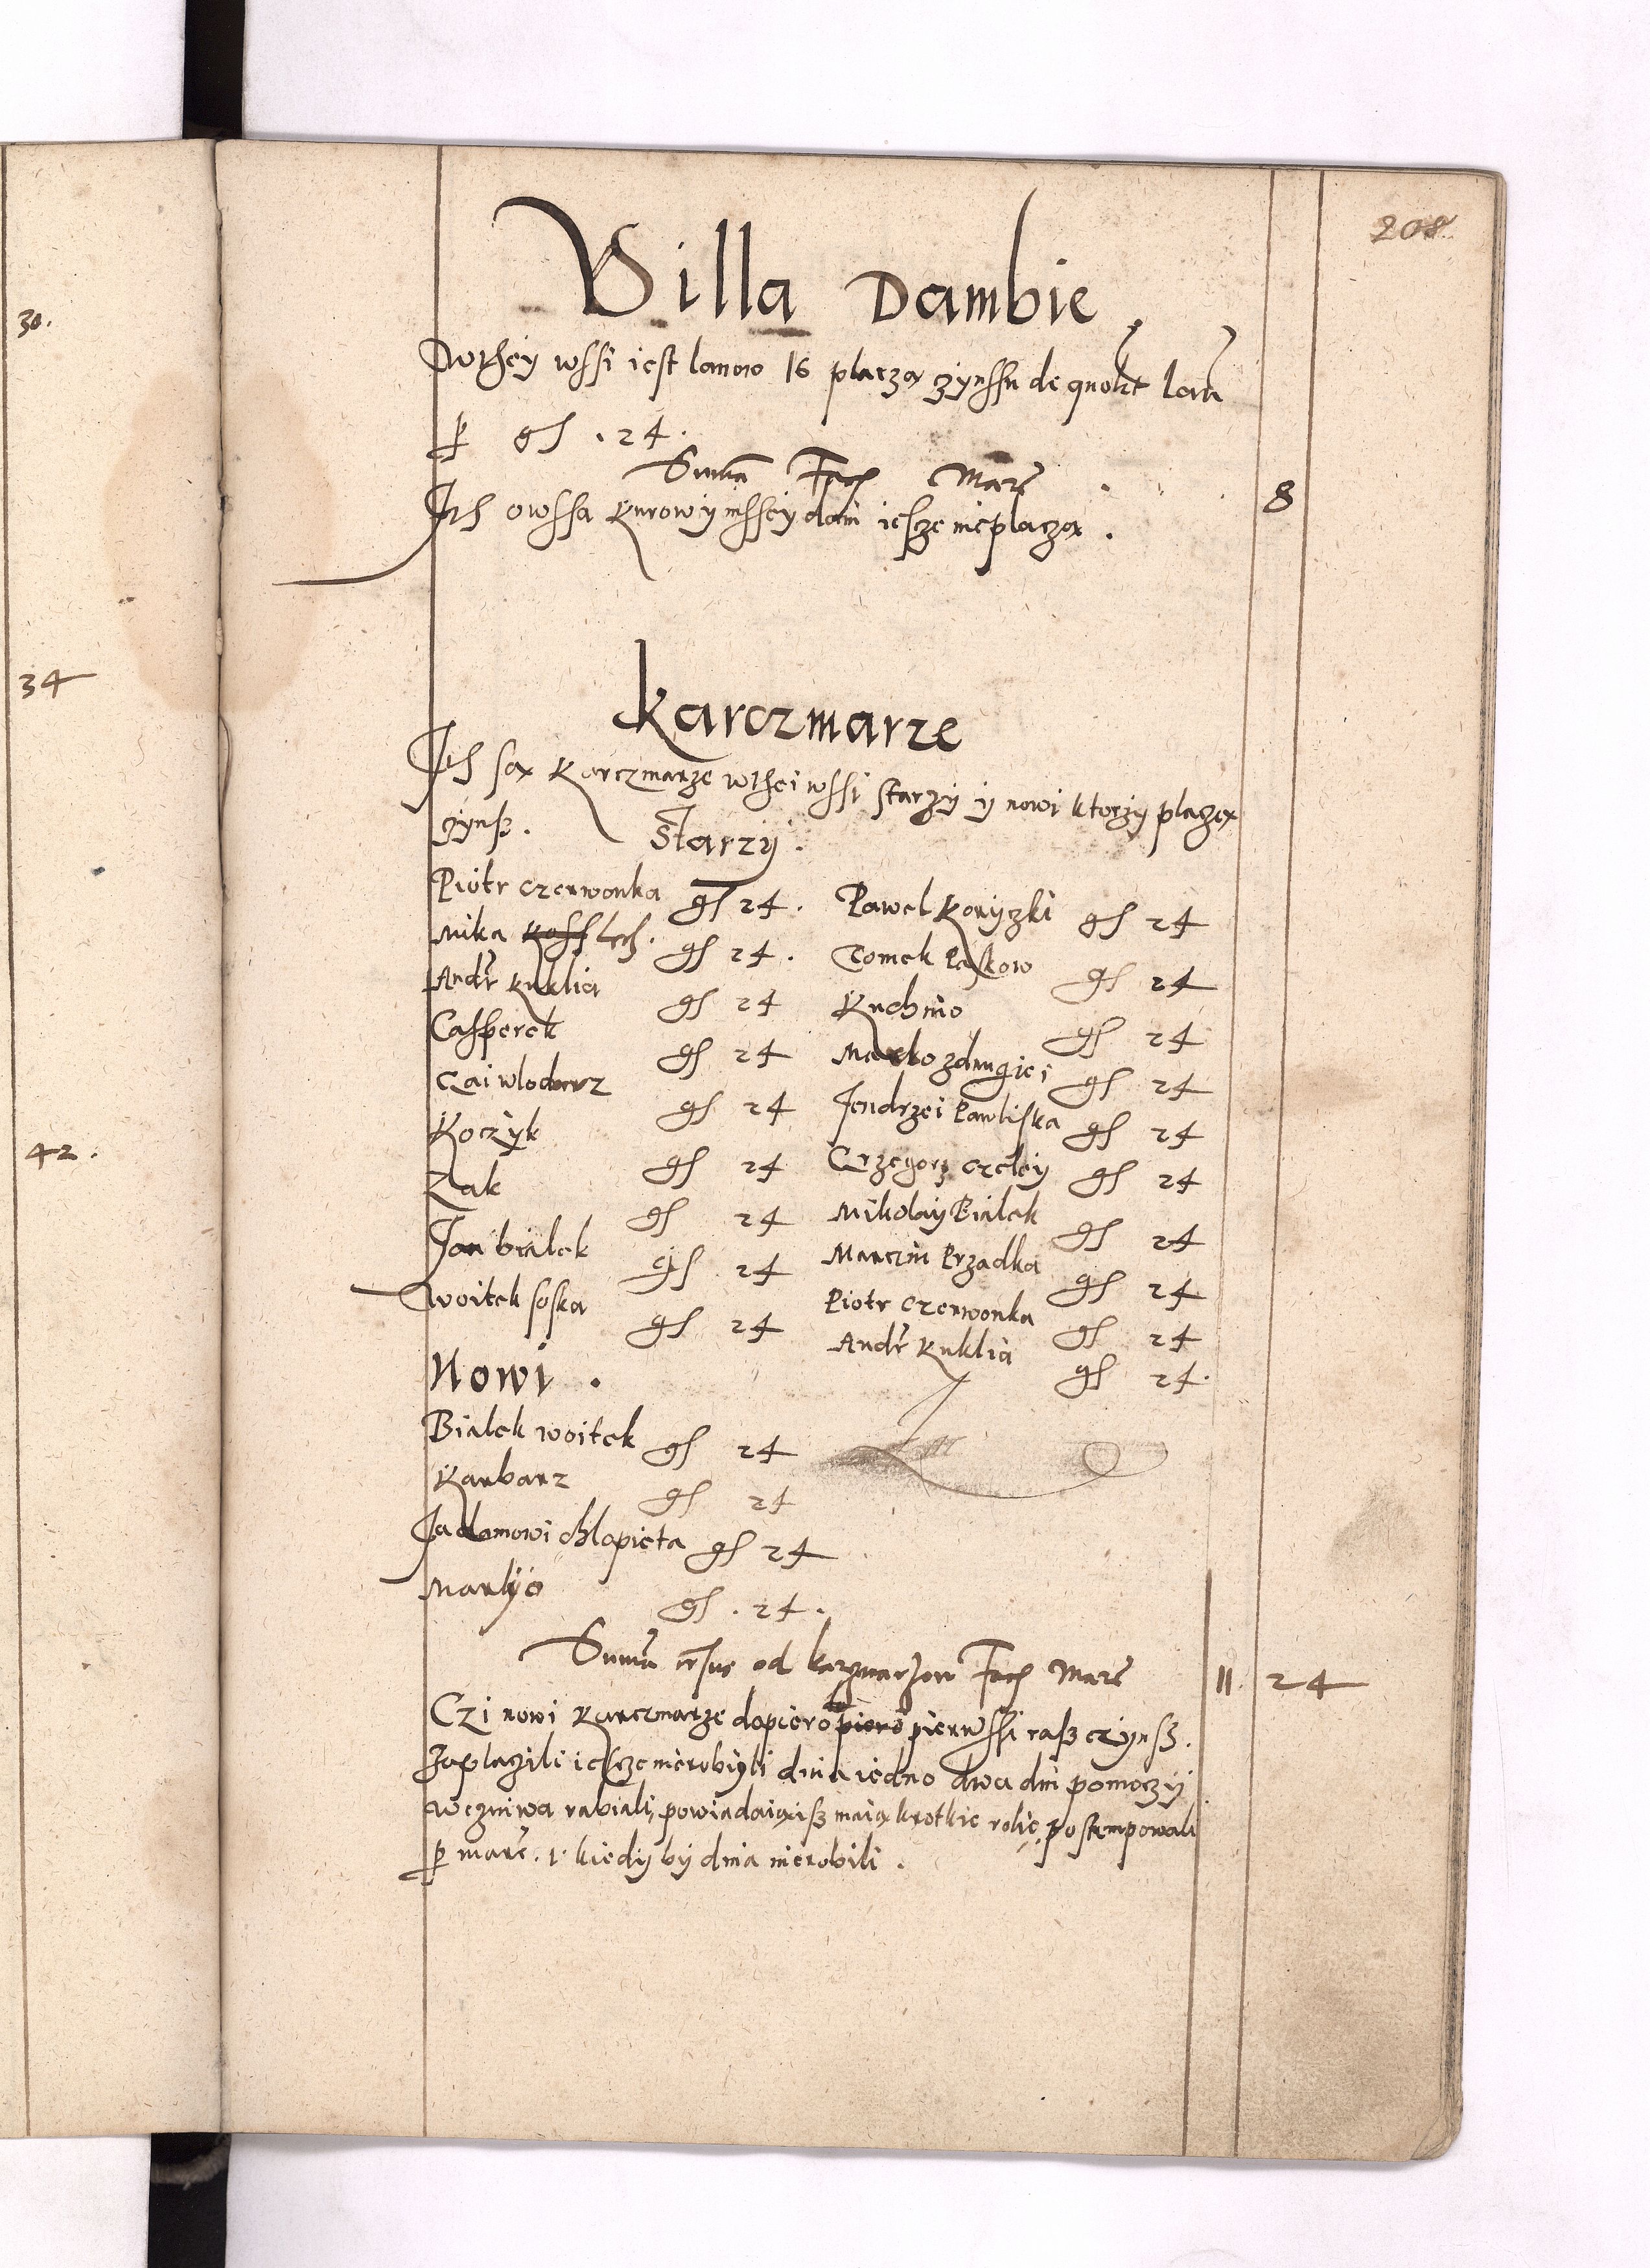 208
30.
34
42.
Villa Dambie
Wthey wssi iest lanow 16 placzą czynssu de quolt lan
p gs . 24.
Suma Facit Marc 8
Ith owssa kurow y inssey dani iescze nieplaczą .
Karczmarze
Ith są karczmarze wthei wssi starzy y nowi ktorzy placzą
czynsz .
Starzy .
Piotr Czerwonka gs 24 . Pawel Koryczki gs 24
Mika gs 24 . Tomek Paskow gs 24
Andr Kuklia gs 24 Kuchnio gs 24
Casperek gs 24 Matko zdrugiei gs 24
Czai wlodarz gs 24 Jendrzei Pawliska gs 24
Koczyk gs 24 Grzegorz Czeley gs 24
Zak gs 24 Mikolay Bialek gs 24
Jan bialek gs 24 Marczin Przadka gs 24
Woitek soska gs 24 Piotr Czerwonka gs 24
Andr Kuklia gs 24.
Nowi .
Bialek woitek gs 24
Karbarz gs 24
Jadamowi chlapieta gs 24
Markyo gs . 24 .
Suma census od karczmarzow Facit Marc 11 24
Czi nowi karczmarze dopiero piero pierwssi rasz czynsz .
zaplaczili iescze nierobiyli dnia iedno dwa dni pomoczy
wezniwa rabiali, powiadaią isz maią krotkie rolie, postempowali
p marc . 1. kiedy by dnia nierobili .